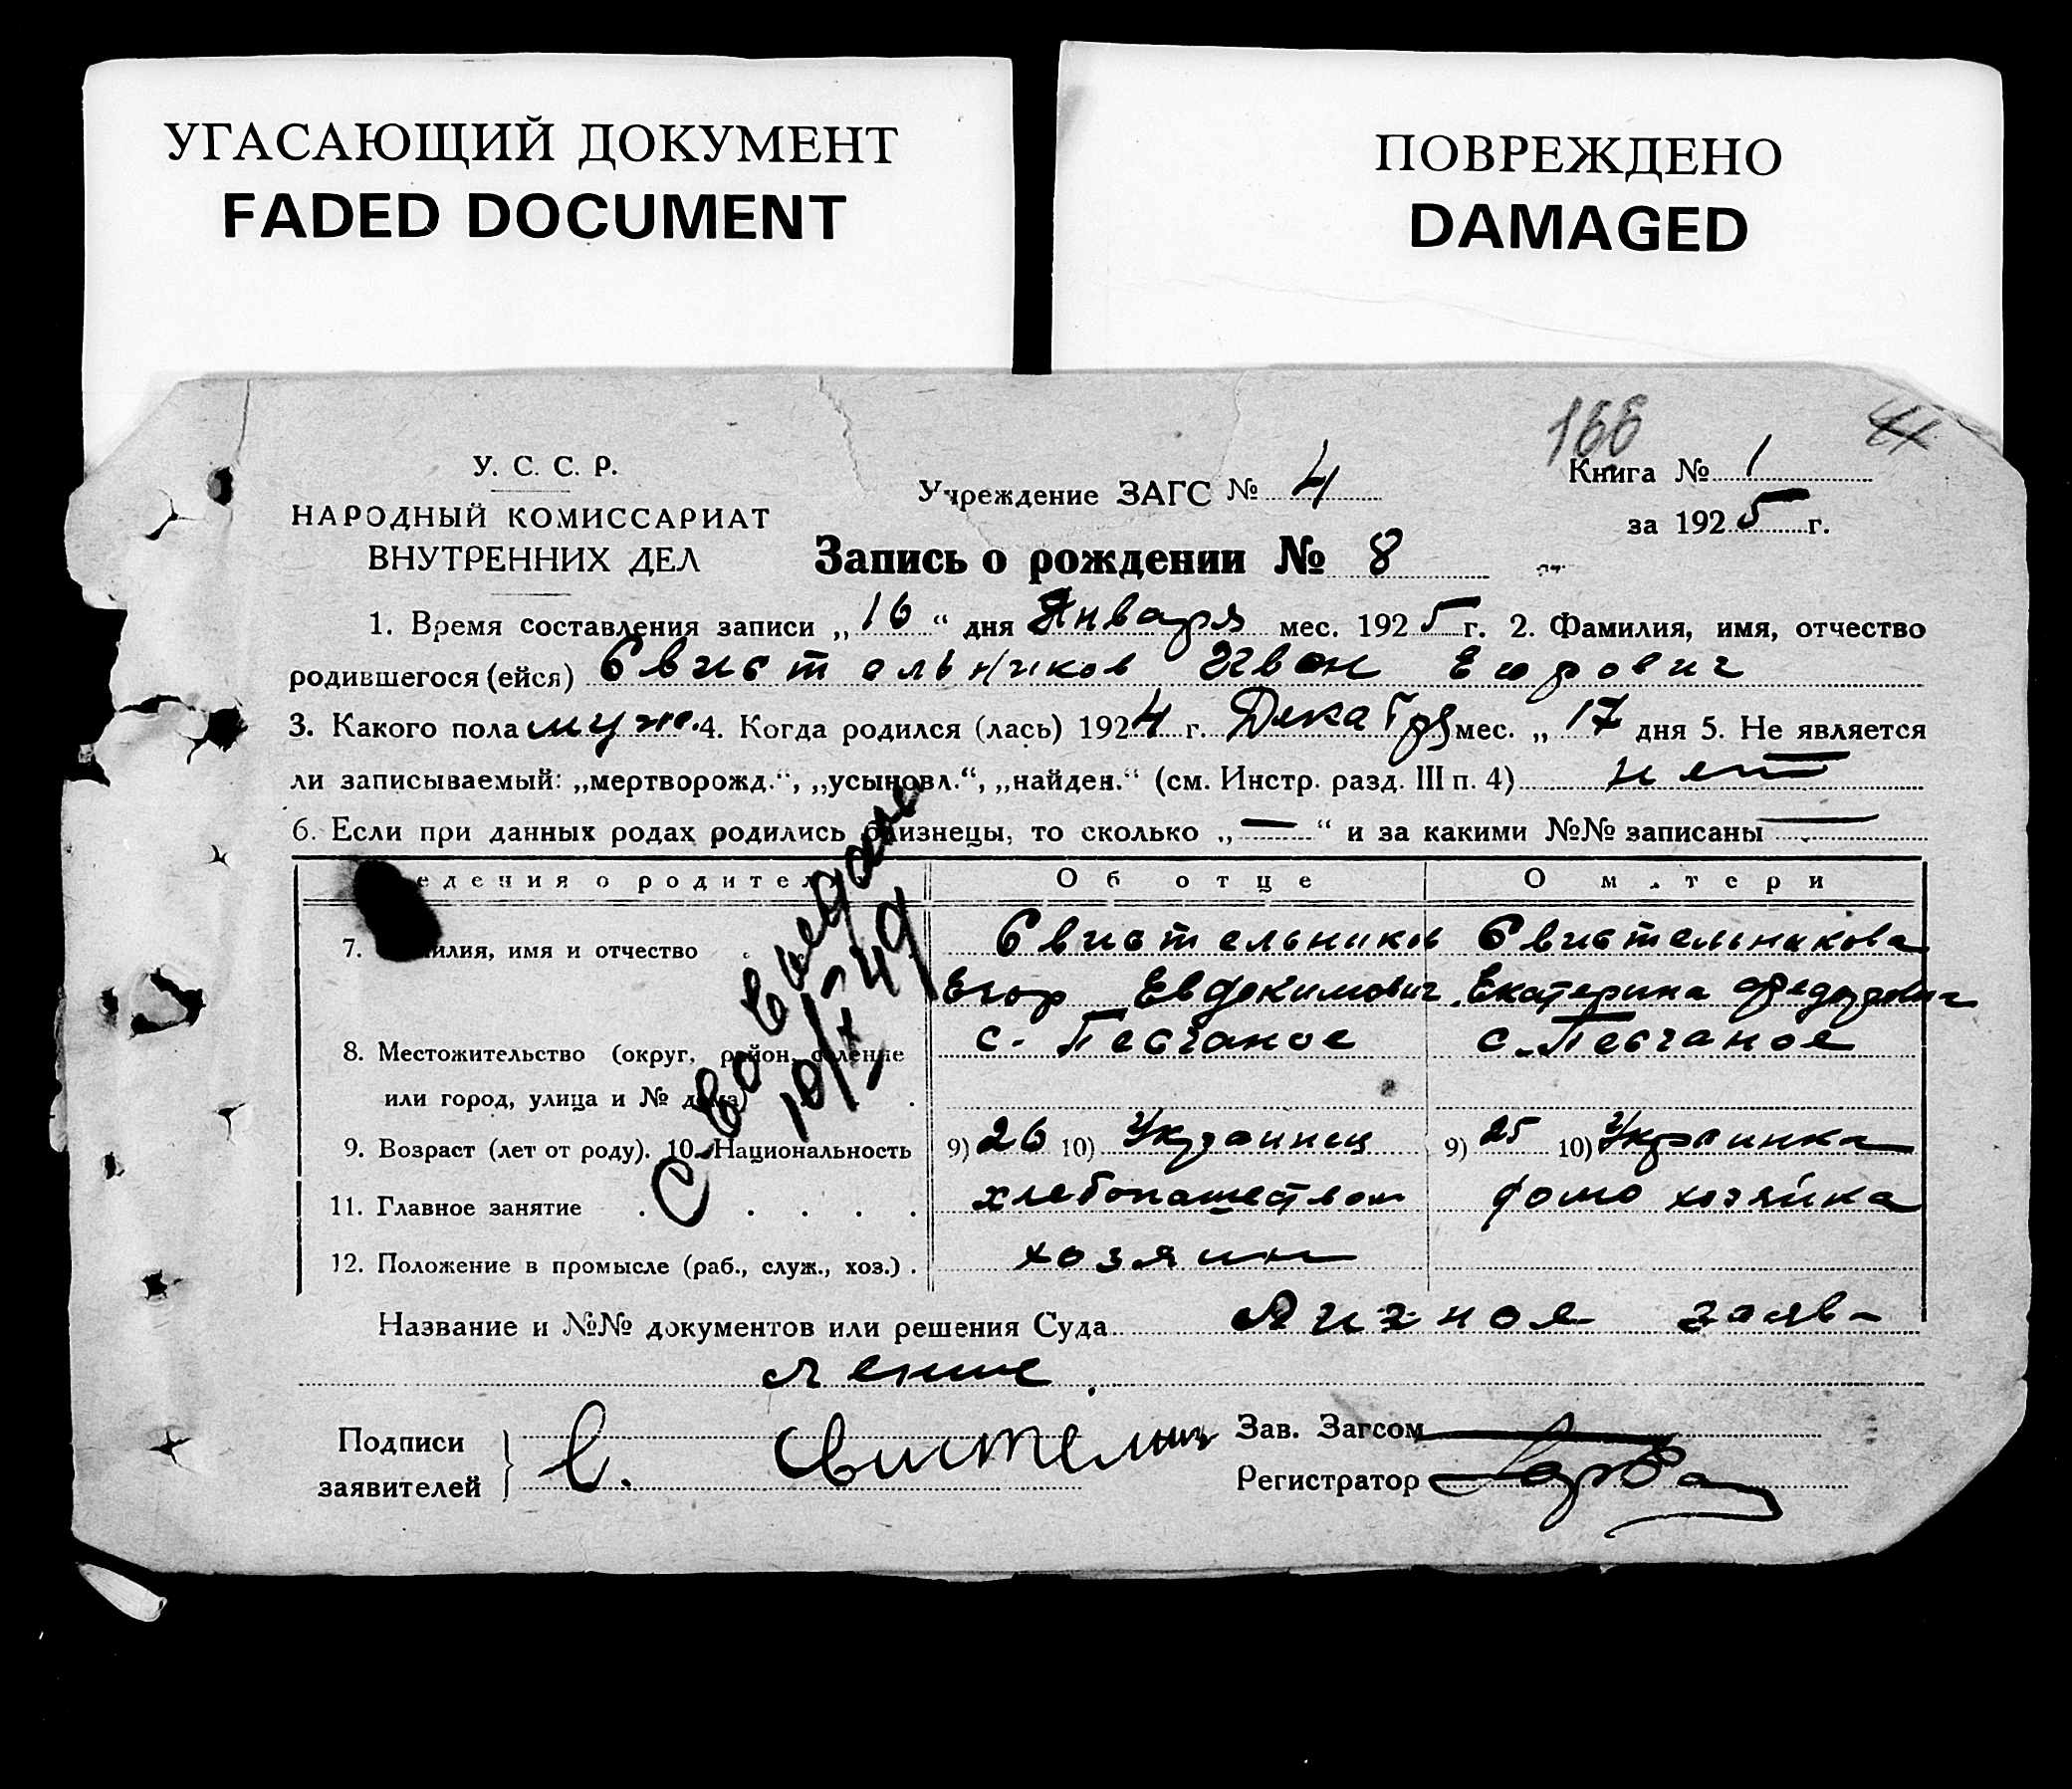 УГАСАЮЩИЙ ДОКУМЕНТ
FADED DOCUMENT
ПОВРЕЖДЕНО
DAMAGED
166
У. С. С. Р.
НАРОДНЫЙ КОМИССАРИАТ
ВНУТРЕННИХ ДЕЛ
Учреждение ЗАГС № 4
Книга № 1
за 1925 г.
Запись о рождении № 8
1. Время составления записи „16“ дня Января мес. 1925 г. 2. Фамилия, имя, отчество
родившегося (ейся) Свистельников Иван Егорович
3. Какого пола муж. 4. Когда родился (лась) 1924 г. Декабря мес. „17 дня 5. Не является
ли записываемый: „мертворожд.“, „усыновл.“, „найден.“ (см. Инстр. разд. III п. 4) нет
6. Если при данных родах родились близнецы, то сколько „—“ и за какими №№ записаны —
едения о родител Об отце О м.тери
7. илия, имя и отчество Свистельников Свистельникова
Егор Евдокимович Екатерина Федорович
8. Местожительство (округ, район, селение с. Песчаное с. Песчаное
или город, улица и № дома)
9. Возраст (лет от роду). 10. Национальность 9) 26 10) Украинец 9) 25 10) Украинка
11. Главное занятие хлебопашеством домо хозяйка
12. Положение в промысле (раб., служ., хоз.) . хозяин
Название и №№ документов или решения Суда Личное заяв-
ление.
Подписи
заявителей
Е. Свистельник
Зав. Загсом
Регистратор